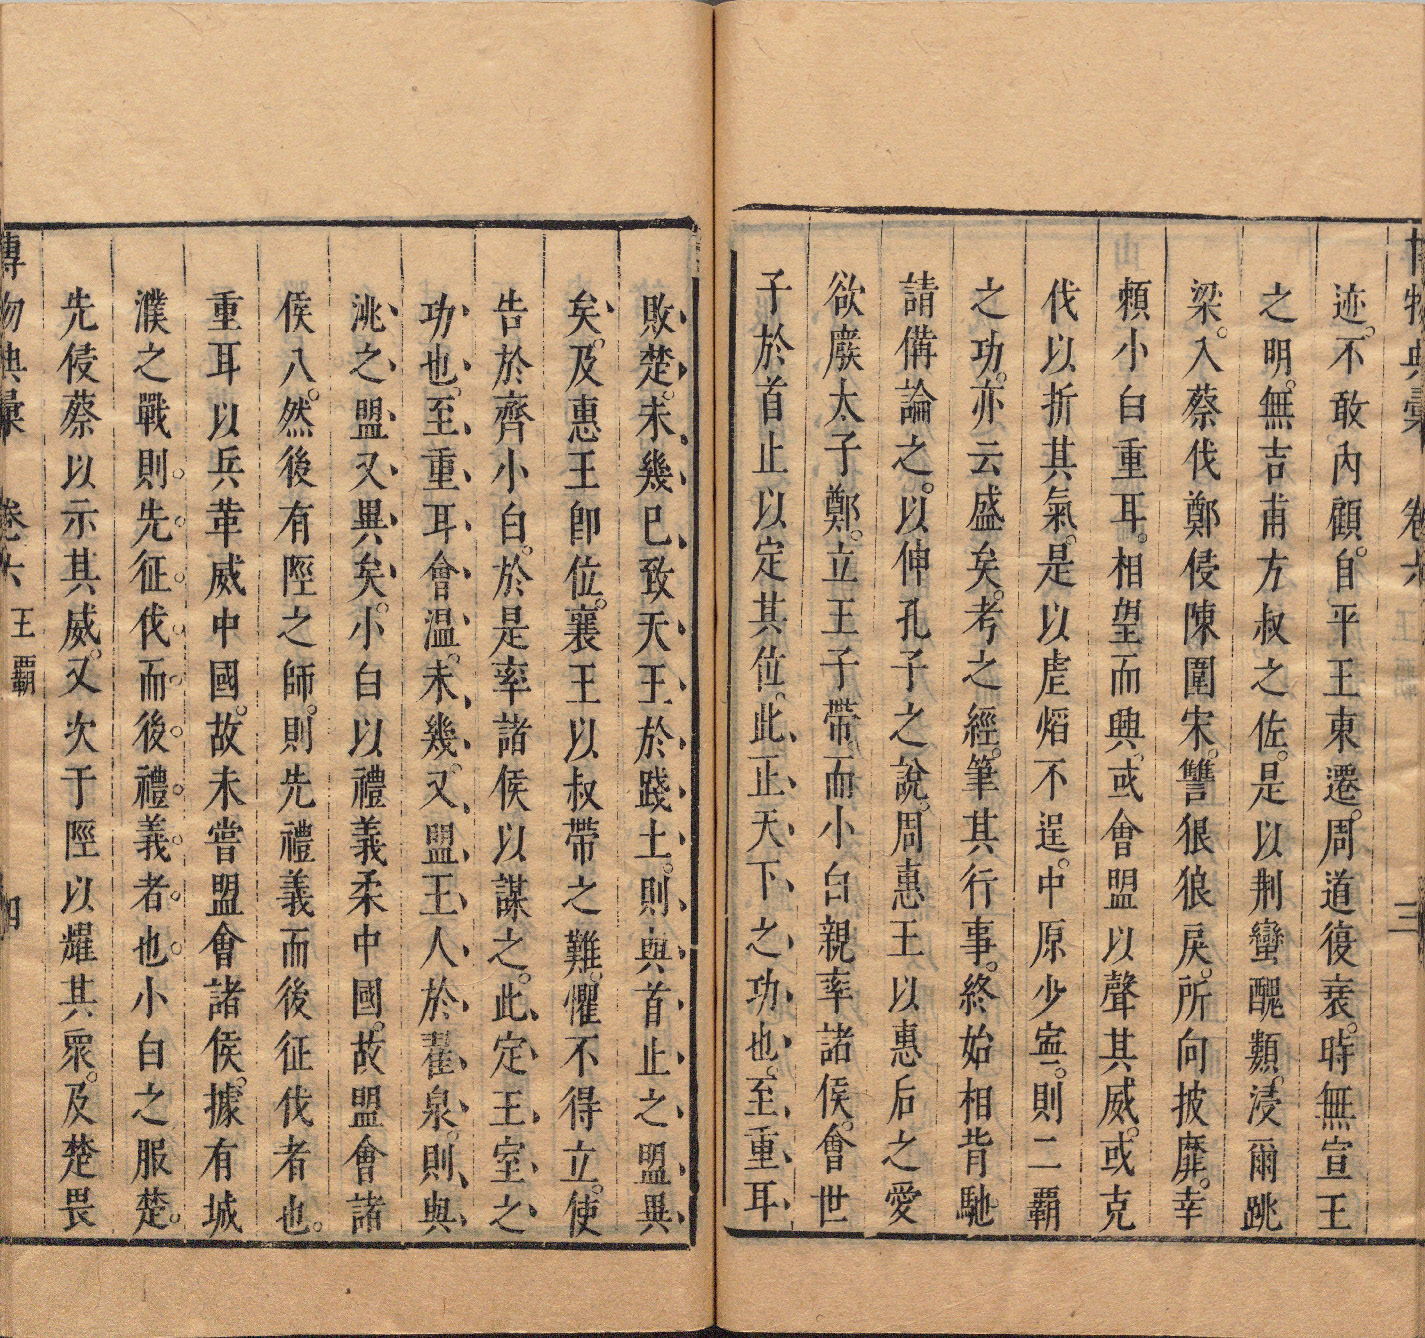 博物典彙　卷六　王霸　三
迹。不敢內顧。自平王東遷。周道復衰。時無宣王
之明。無吉甫方叔之佐。是以荆蠻醜類。浸爾跳
梁。入蔡伐鄭侵陳圍宋。讐狠狼戾。所向披靡。幸
頼小白重耳。相望而興。或會盟以聲其威。或克
伐以折其氣。是以虐熖不逞。中原少寧。則二覇
之功。亦云盛矣。考之經。筆其行事。終始相背馳。
請備論之。以伸孔子之說。周惠王以惠后之愛
欲廢太子鄭。立王子帶。而小白親率諸侯。會世
子於首止。以定其位。此正天下之功也。至重耳
敗楚。未幾已致天王於踐土。則與首止之盟異
矣。及惠王卽位。襄王以叔帶之難。懼不得立。使
告於齊小白。於是率諸侯以謀之。此定王室之
功也。至重耳會温。未幾。又盟王人於翟泉。則與
洮之盟又異矣。小白以禮義柔中國。故盟會諸
侯八。然後有陘之師。則先禮義而後征伐者也。
重耳以兵革威中國。故未嘗盟會諸侯。據有城
濮之戰則。先。征。伐。而。後。禮。義。者。也。小白之服楚。
先侵蔡以示其威。又次于陘以耀其衆。及楚畏
博物典彙　卷六　王覇　四